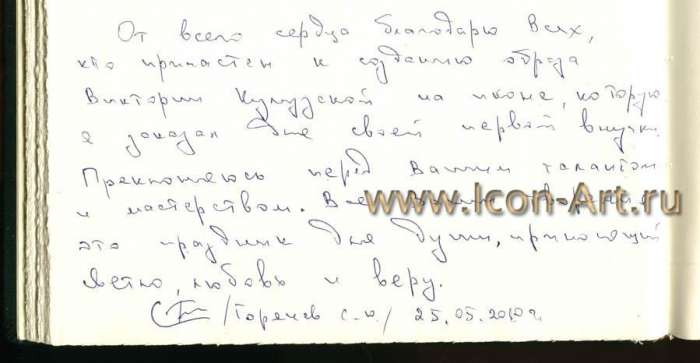 От всего сердца благодарю всех,
кто причастен к созданию образа
Виктории Кулузской на иконе, которую
я заказал для своей первой внучки.
Преклоняюсь перед Вашим талантом
и мастерством. Все Ваши творения
www.Icon-Art.ru
это праздник для души, приносящий
светло, любовь и веру.
/Горячев С.Ю./ 25.05.2010г.